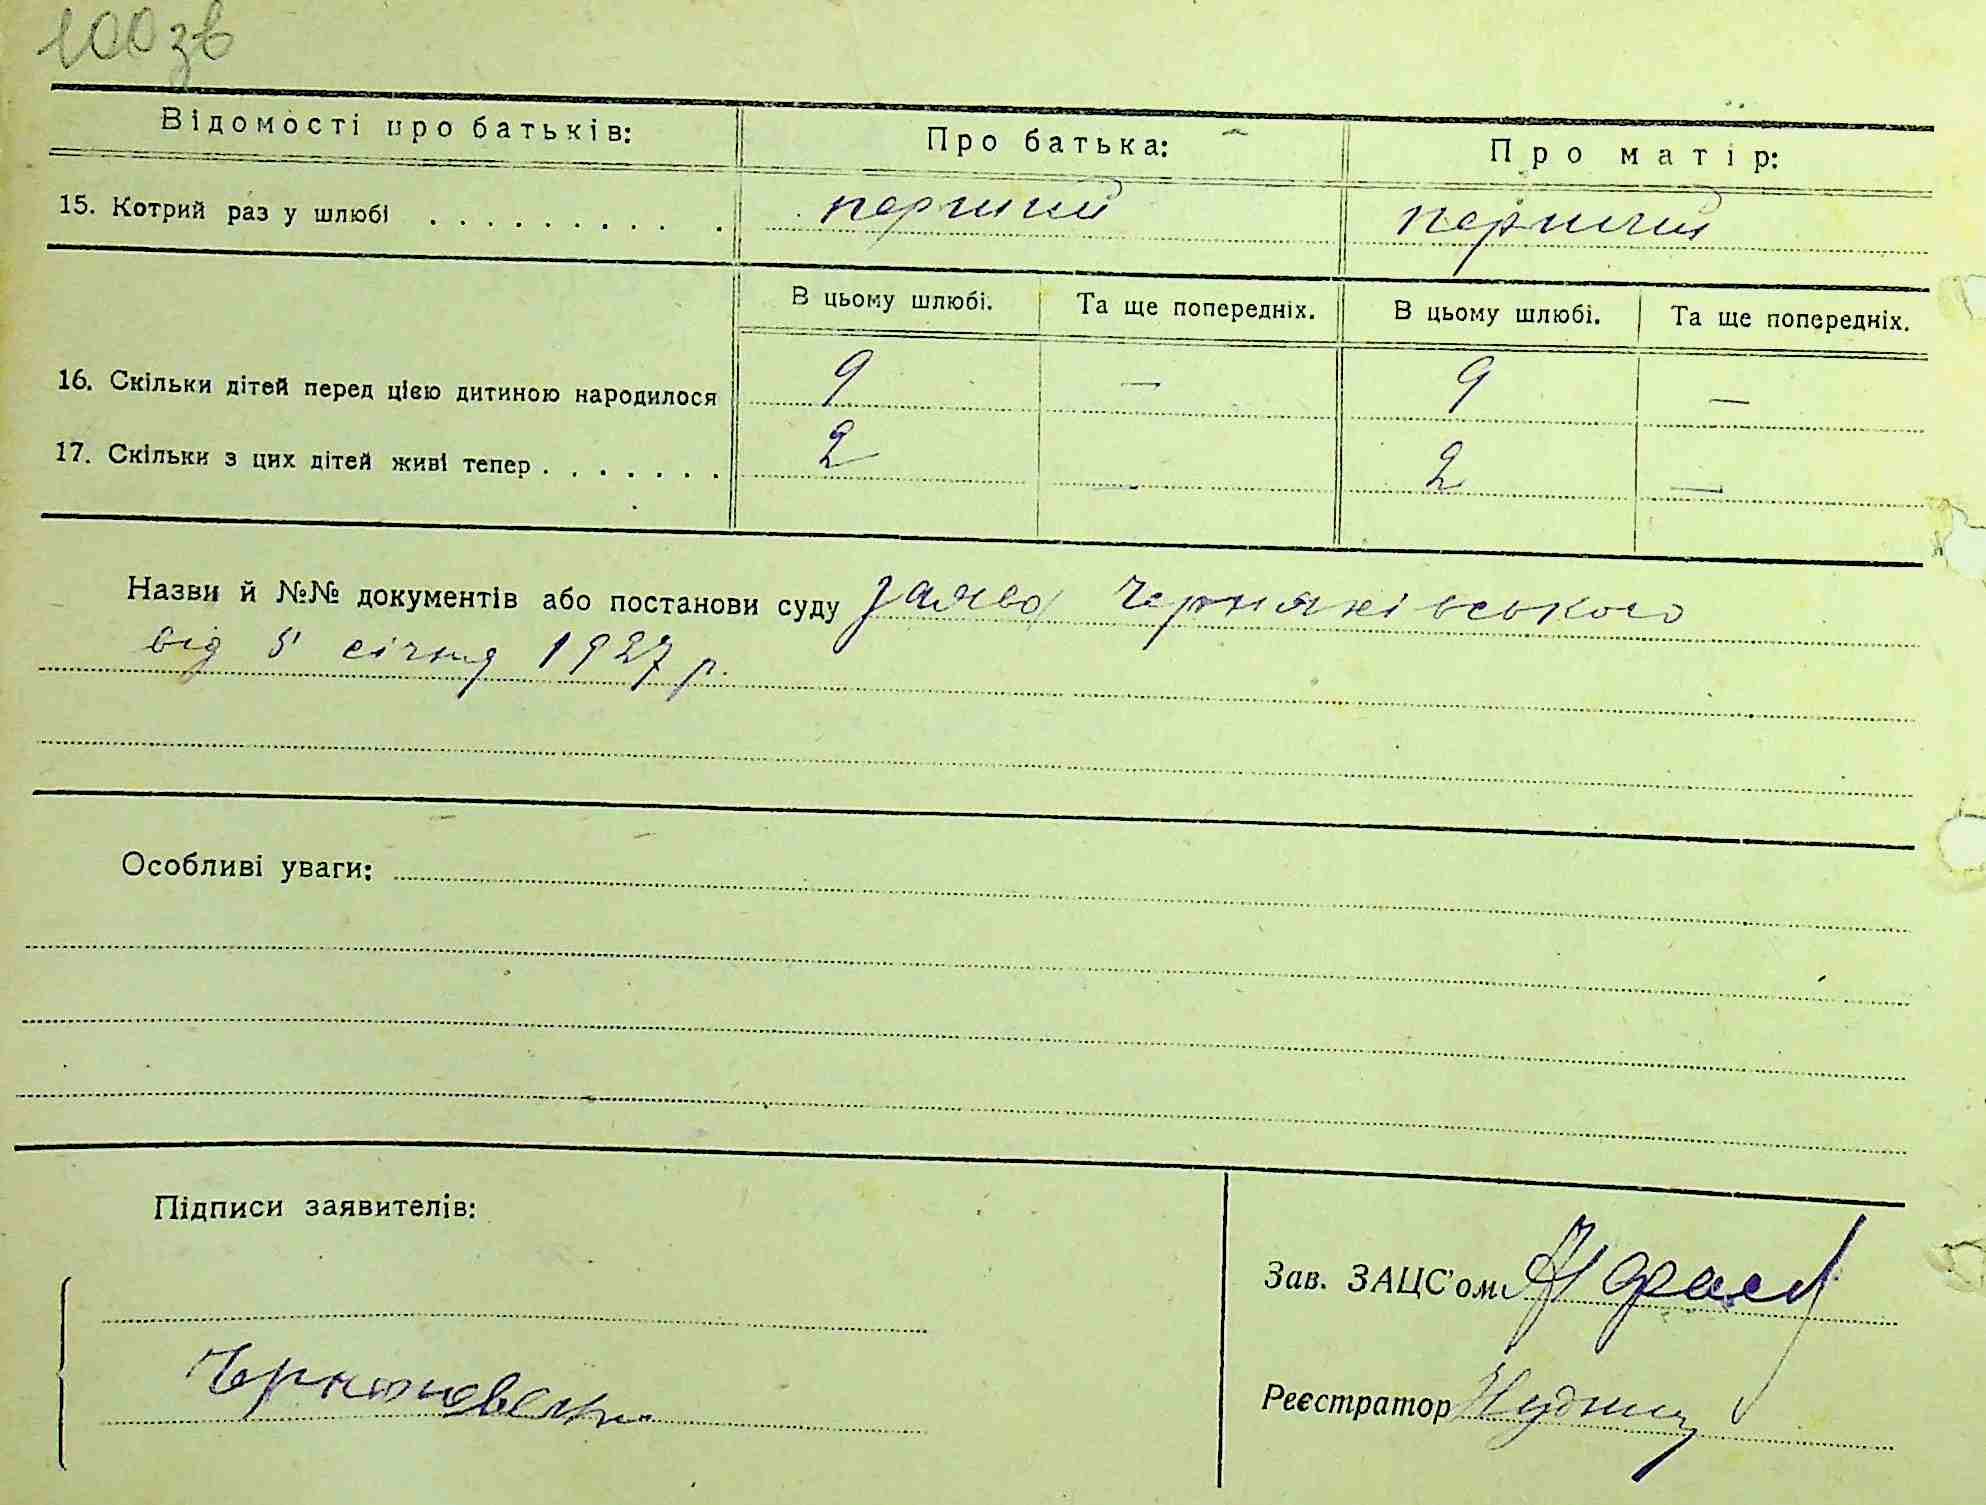 100 зв
Відомості про батьків: Про батька: Про матір:
15. Котрий раз у шлюбі . . . . . . . . . . перший перший
В цьому шлюбі. Та ще попередніх. В цьому шлюбі. Та ще попередніх.
16. Скільки дітей перед цією дитиною народилося 9 — 9 —
17. Скільки з цих дітей живі тепер . . . . . . . 2 — 2 —
Назви й №№ документів або постанови суду заява Черняхівського
від 5 січня 1927 р.
Особливі уваги:
Підписи заявителів:
Зав. ЗАЦС'ом
Реєстратор